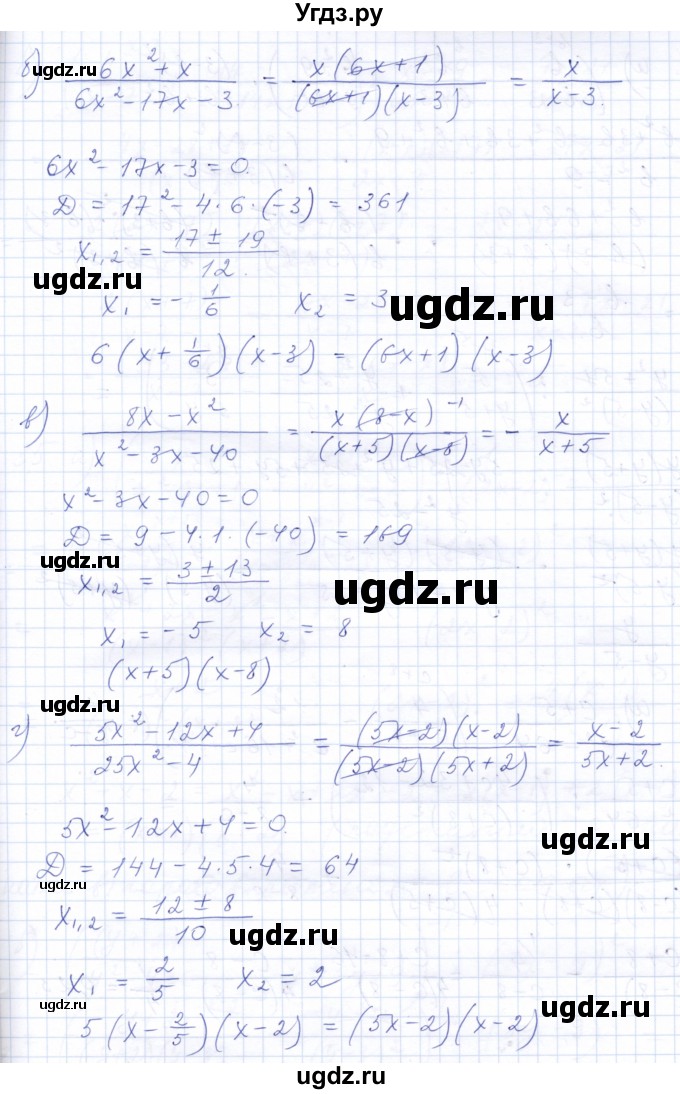 Угдз.ру
б) (6x² + x)/(6x² - 17x - 3) = x(6x+1)/((6x+1)(x-3)) = x/(x-3).
ugdz.ru
6x² - 17x - 3 = 0.
Д = 17² - 4·6·(-3) = 361
x₁,₂ = (17 ± 19)/12.
ugdz.ru
x₁ = -1/6    x₂ = 3
ugdz.ru
6(x + 1/6)(x-3) = (6x+1)(x-3)
в) (8x - x²)/(x² - 3x - 40) = x(8-x)⁻¹/((x+5)(x-8)) = - x/(x+5)
x² - 3x - 40 = 0
Д = 9 - 4·1·(-40) = 169
ugdz.ru
x₁,₂ = (3 ± 13)/2
ugdz.ru
x₁ = -5    x₂ = 8
(x+5)(x-8)
ugdz.ru
г) (5x² - 12x + 4)/(25x² - 4) = (5x-2)(x-2)/((5x-2)(5x+2)) = (x-2)/(5x+2).
5x² - 12x + 4 = 0.
ugdz.ru
Д = 144 - 4·5·4 = 64
ugdz.ru
x₁,₂ = (12 ± 8)/10
ugdz.ru
x₁ = 2/5    x₂ = 2
ugdz.ru
ugdz.ru
5(x - 2/5)(x-2) = (5x-2)(x-2)
ugdz.ru